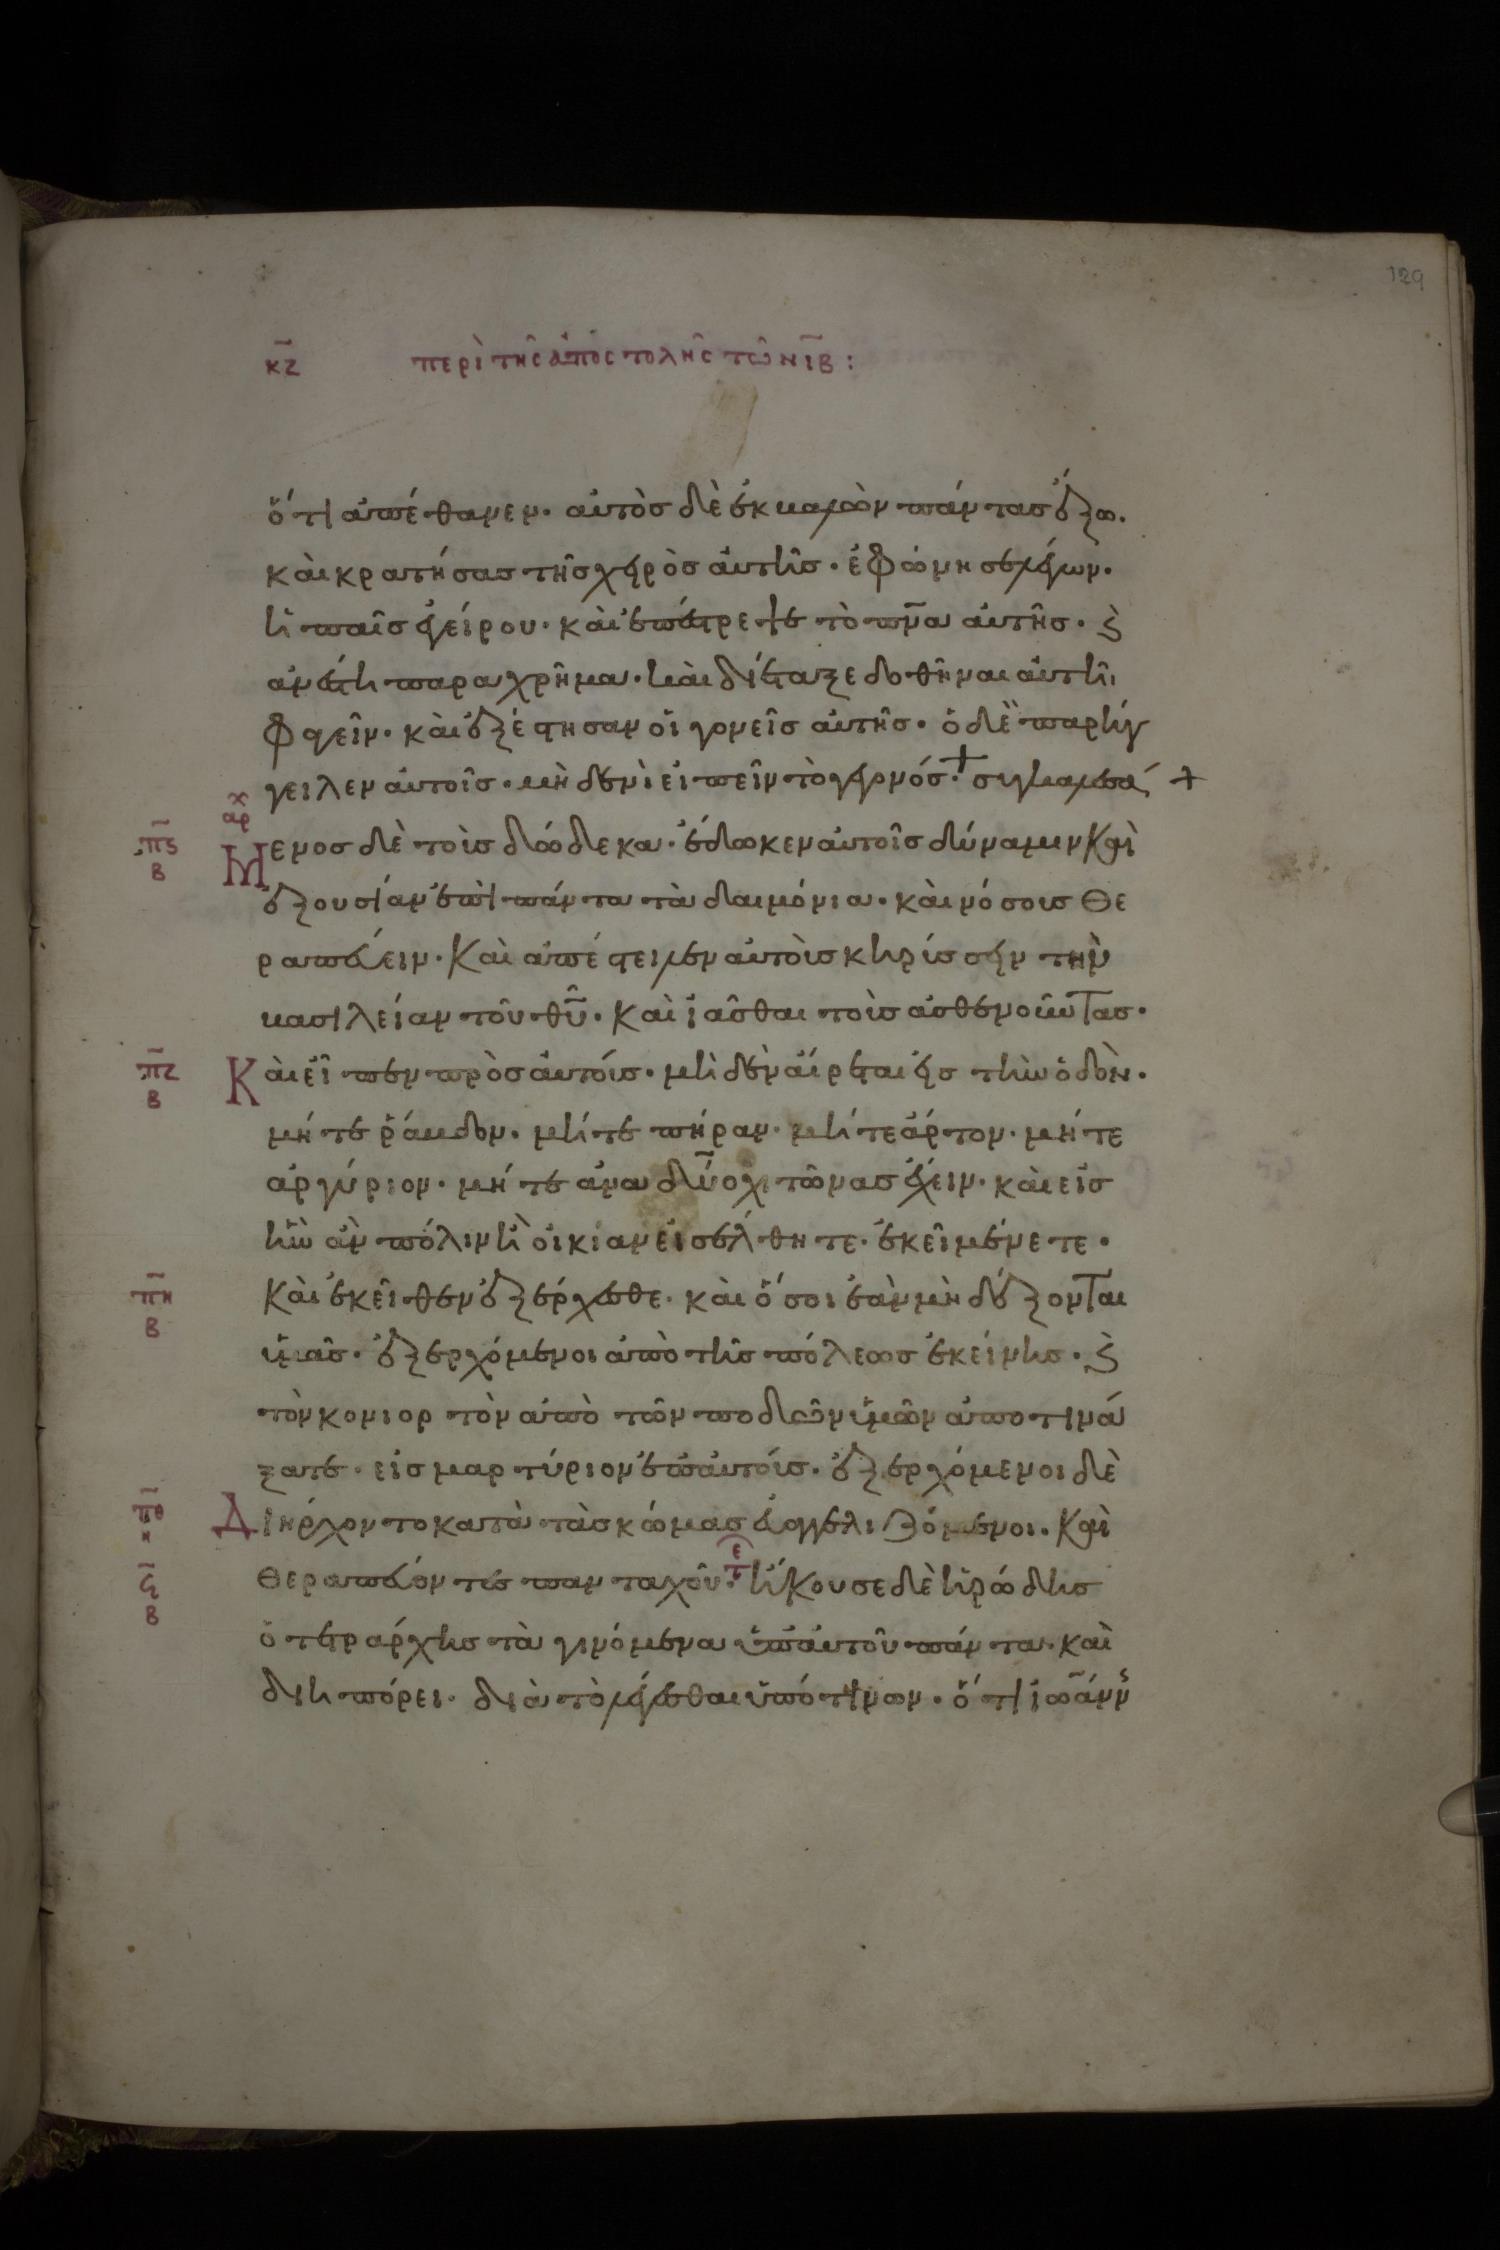 129
κζ περὶ τῆς ἀποστολῆς τῶν ιβ:
ὅτι ἀπέθανεν. αὐτὸσ δὲ ἐκβαλὼν πάντασ ἔξω.
καὶ κρατήσασ τῆσ χειρὸσ αὐτῆσ. ἐφώνησε λέγων.
ἡ παῖσ ἐγείρου. καὶ ἐπέστρεψε τὸ πνα αὐτῆσ. ϗ
ἀνέστη παραχρῆμα. καὶ διέταξε δοθῆναι αὐτῆ
φαγεῖν. καὶ ἐξέστησαν οἱ γονεῖσ αὐτῆσ. ὁ δὲ παρήγ
γειλεν αὐτοῖσ. μὴδενὶ εἰπεῖν τὸ γεγονόσ. + συγκαλεσά +
χ
αρ
πς
β
Μενοσ δὲ τοὺσ δώδεκα. ἔδωκεν αὐτοῖσ δύναμιν καὶ
ἐξουσίαν ἐπὶ πάντα τὰ δαιμόνια. καὶ νόσουσ θε
ραπεύειν. καὶ ἀπέστειλεν αὐτοὺσ κηρύσσειν τὴν
βασιλείαν τοῦ θυ. καὶ ἰᾶσθαι τοὺσ ἀσθενοῦντασ.
πζ
β
Καὶ εἶπεν πρὸσ αὐτούσ. μὴδὲν αἴρεται εἰσ τὴν ὁδὸν.
μήτε ῥάβδον. μήτε πήραν. μήτε ἄρτον. μήτε
ἀργύριον. μήτε ἀνα δύο χιτῶνασ ἔχειν. καὶ εἰσ
ἣν ἂν πόλιν ἢ οἰκίαν εἰσέλθητε. ἐκεῖ μένετε.
πη
β
Καὶ ἐκεῖθεν ἐξέρχεσθε. καὶ ὅσοι ἐὰν μὴ δέξονται
ὑμᾶσ. ἐξερχόμενοι ἀπὸ τῆσ πόλεωσ ἐκείνησ. ϗ
τὸν κονιορτὸν ἀπὸ τῶν ποδῶν ὑμῶν ἀποτινά
ξατε. εἰσ μαρτύριον ἐπ αὐτούσ. ἐξερχόμενοι δὲ
πθ
η
Διήρχοντο κατὰ τὰσ κώμασ εὐαγγελιζόμενοι. καὶ
ϟ
β
θεραπεύοντεσ πανταχοῦ. ἤκουσε δὲ ἡρώδησ
ὁ τετράρχησ τὰ γινόμενα ὑπ αὐτοῦ πάντα. καὶ
διηπόρει. διὰ τὸ λέγεσθαι ὑπό τινων. ὅτι ἰωάνν